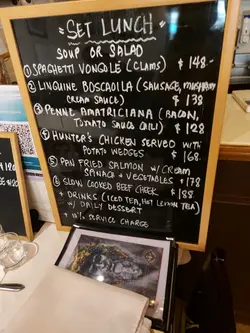 SET LUNCH
SOUP OR SALAD
① SPAGHETTI VONGOLE (CLAMS) $148.-
② LINGUINE BOSCAOILA (SAUSAGE, MUSHROOM
CREAM SAUCE) $138
③ PENNE AMATRICIANA (BACON,
TOMATO SAUCE CHILI) $128
④ HUNTER'S CHICKEN SERVED WITH
POTATO WEDGES $168.
⑤ PAN FRIED SALMON W/ CREAM
SPINACH + VEGETABLES $178
⑥ SLOW COOKED BEEF CHEEK $188
+ DRINKS (ICED TEA, HOT LEMON TEA)
W/ DAILY DESSERT
+ 10% SERVICE CHARGE